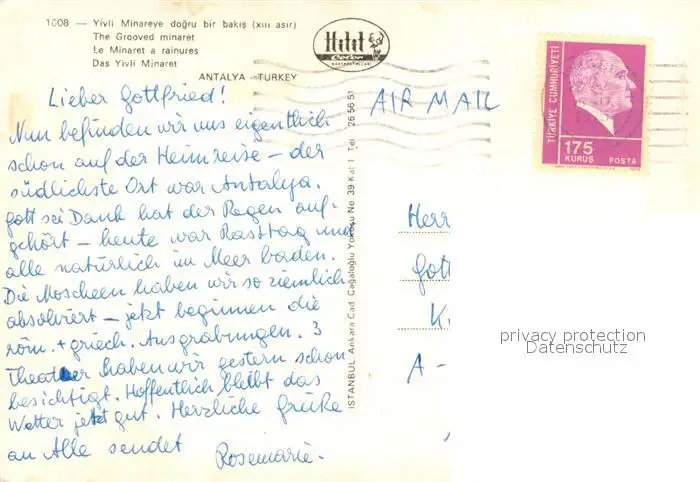 1008 — Yivli Minareye doğru bir bakış (xııı asır)
The Grooved minaret
Le Minaret a rainures
Das Yivli Minaret
ANTALYA - TURKEY
Hitit
Color
AIR MAIL
TÜRKİYE CUMHURİYETİ
175
KURUŞ POSTA
Lieber Gottfried!
Nun befinden wir uns eigentlich
schon auf der Heimreise – der
südlichste Ort war Antalya.
Gott sei Dank hat der Regen auf-
gehört – heute war Rasttag und
alle natürlich im Meer baden.
Die Moscheen haben wir so ziemlich
absolviert – jetzt beginnen die
röm. + griech. Ausgrabungen. 3
Theater haben wir gestern schon
besichtigt. Hoffentlich bleibt das
Wetter jetzt gut. Herzliche Grüße
an Alle sendet
Rosemarie.
İSTANBUL Ankara Cad Cağaloğlu Yokuşu No. 39 Kat 1 Tel 26 56 51
Herr
Gott
K
A -
privacy protection
Datenschutz